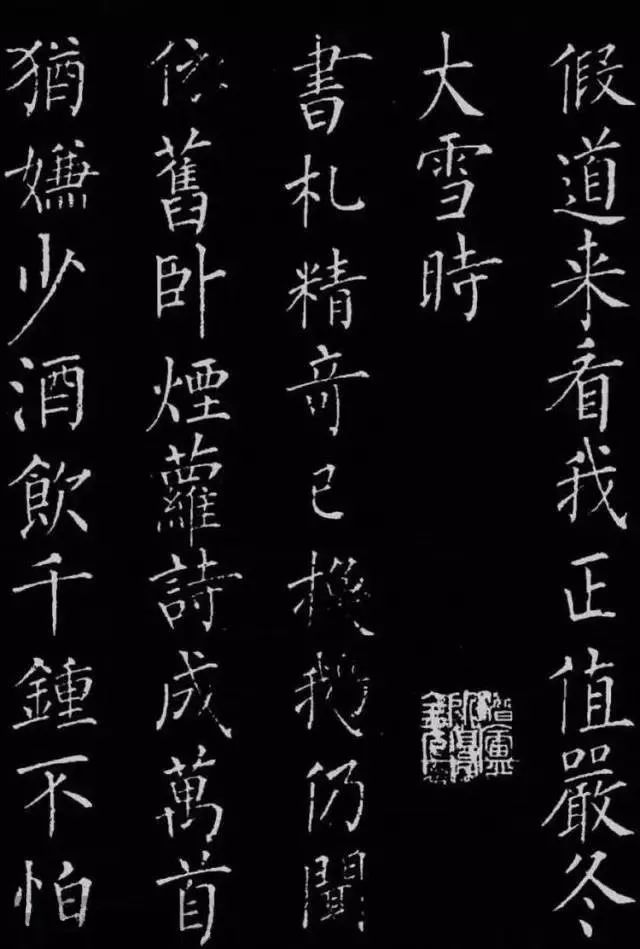 假道来看我正值嚴冬
大雪時
書札精竒已換鵝仍聞
依舊卧煙蘿詩成萬首
猶嫌少酒飲千鍾不怕